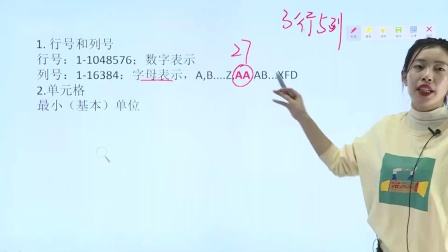 3行5列
27
1. 行号和列号
行号：1-1048576；数字表示
列号：1-16384；字母表示，A,B....Z,AA AB...XFD
2.单元格
最小（基本）单位